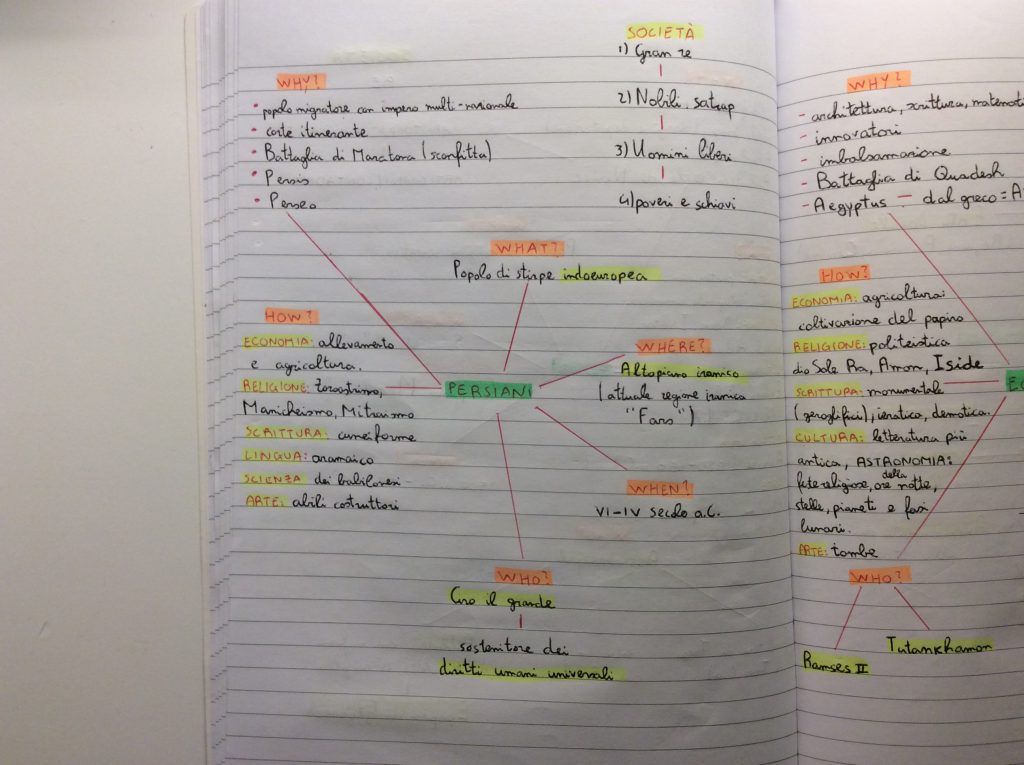 SOCIETÀ
1) Gran re
2) Nobili, satrap
3) Uomini liberi
4) poveri e schiavi
WHY?
• popolo migratore con impero multi-nazionale
• corte itinerante
• Battaglia di Maratona (sconfitta)
• Persis
• Perseo
WHAT?
Popolo di stirpe indoeuropea
HOW?
ECONOMIA: allevamento
e agricoltura.
RELIGIONE: zoroastrismo,
Manicheismo, Mitraismo
SCRITTURA: cuneiforme
LINGUA: aramaico
SCIENZA dei babilonesi
ARTE: abili costruttori
PERSIANI
WHERE?
Altopiano iranico
(attuale regione iranica
"Fars")
WHEN?
VI-IV secolo a.C.
WHO?
Ciro il grande
sostenitore dei
diritti umani universali
WHY?
- architettura, scrittura, matemati
- innovatori
- imbalsamazione
- Battaglia di Quadesh
- Aegyptus — dal greco = A
HOW?
ECONOMIA: agricoltura:
coltivazione del papiro
RELIGIONE: politeistica
dio Sole Ra, Amon, Iside
SCRITTURA: monumentale
(geroglifici), ieratica, demotica.
CULTURA: letteratura più
antica, ASTRONOMIA:
feste religiose, ore della notte,
stelle, pianeti e fasi
lunari.
ARTE: tombe
WHO?
Ramses II
Tutankhamon